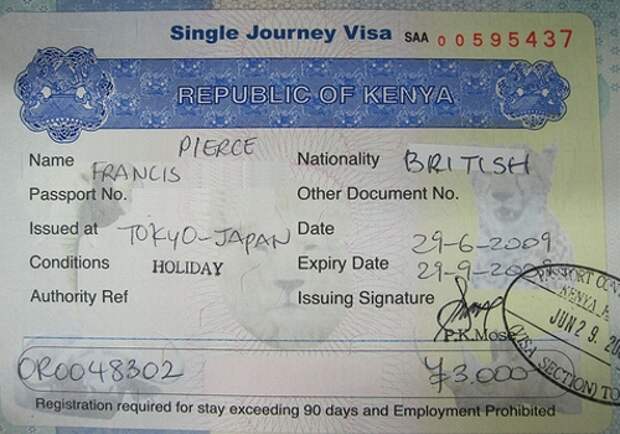 Single Journey Visa SAA 00595437
REPUBLIC OF KENYA
PIERCE
Name FRANCIS Nationality BRITISH
Passport No. Other Document No.
Issued at TOKYO-JAPAN Date 29-6-2009
Conditions HOLIDAY Expiry Date 29-9-2009
Authority Ref Issuing Signature
P.K.Mose
PASSPORT
KENYA
JUN 29. 20
(VISA SECTION) TO
OR0048302 ¥3.000
Registration required for stay exceeding 90 days and Employment Prohibited